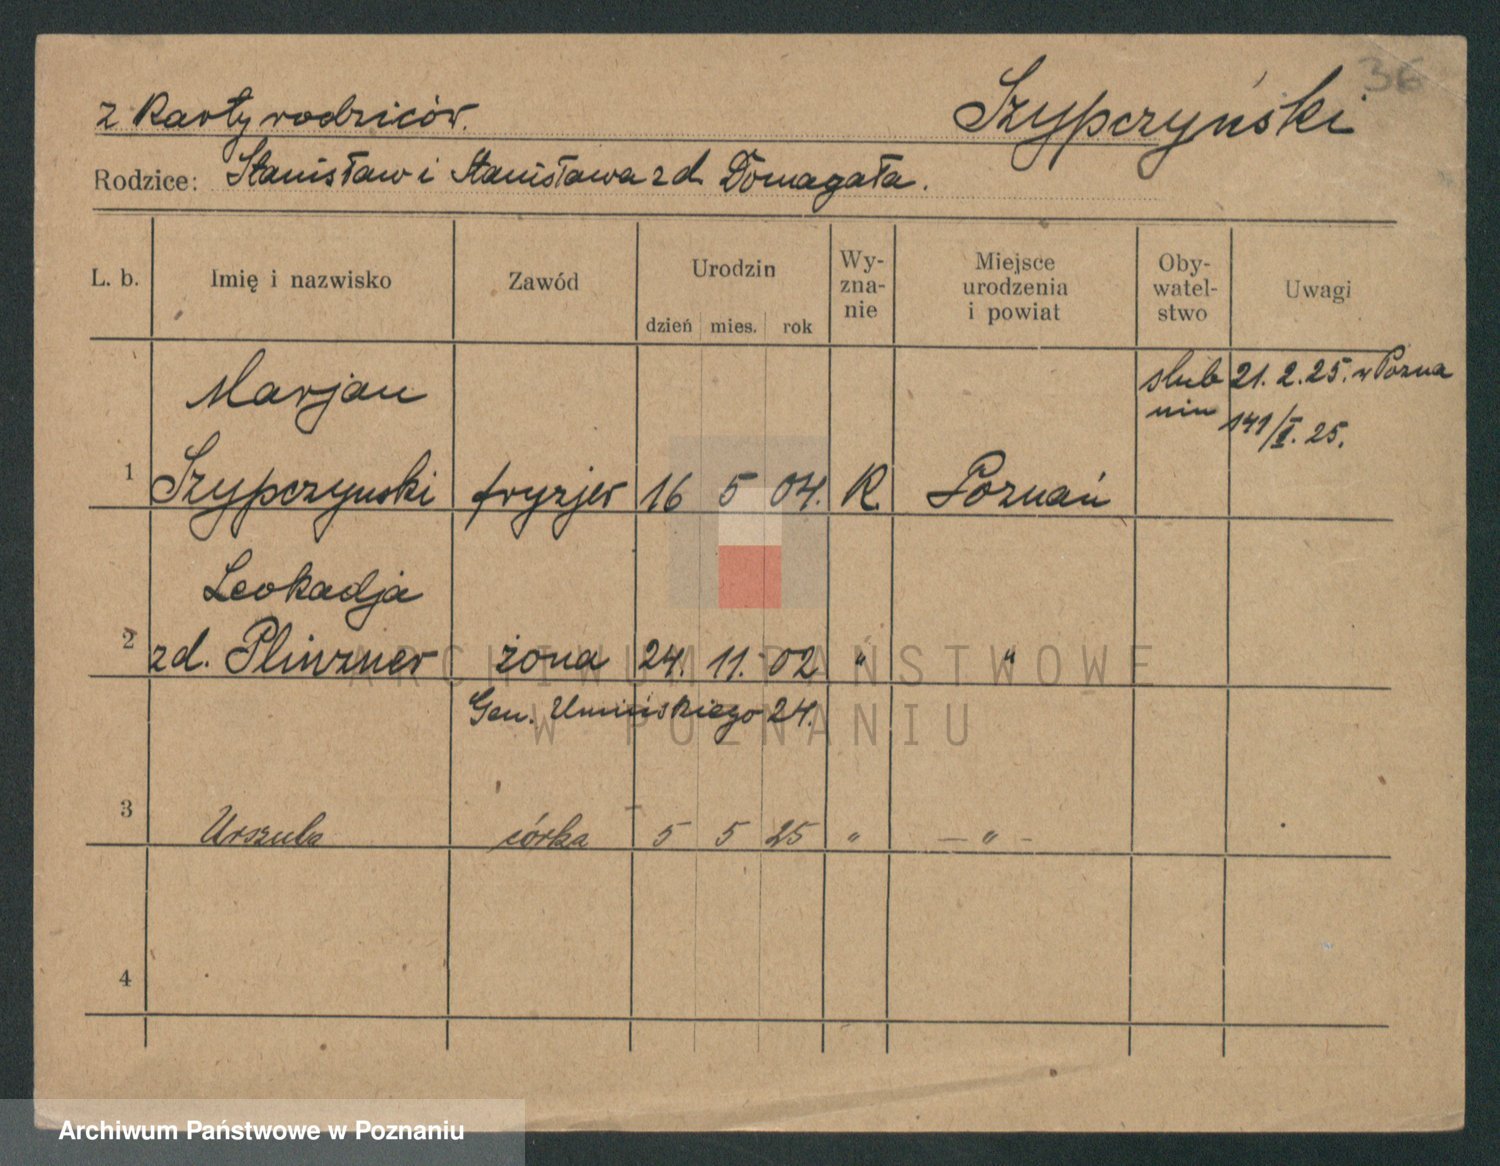 36
z karty rodziców. Szypczyński
Rodzice: Stanisław i Stanisława zd Domagała.
L. b. Imię i nazwisko Zawód Urodzin dzień mies. rok Wy-zna-nie Miejsce urodzenia i powiat Oby-watel-stwo Uwagi
Marjan ślub 21. 2. 25. w Pozna
niu 141/II. 25.
1 Szypczynski fryzjer 16 5 04. R. Poznań
Leokadja
2 zd. Plinzner żona 24. 11. 02 " "
Gen. Umińskiego 24.
3 Urszula córka 5 5 25 " — " —
4
ARCHIWUM PAŃSTWOWE
W POZNANIU
Archiwum Państwowe w Poznaniu